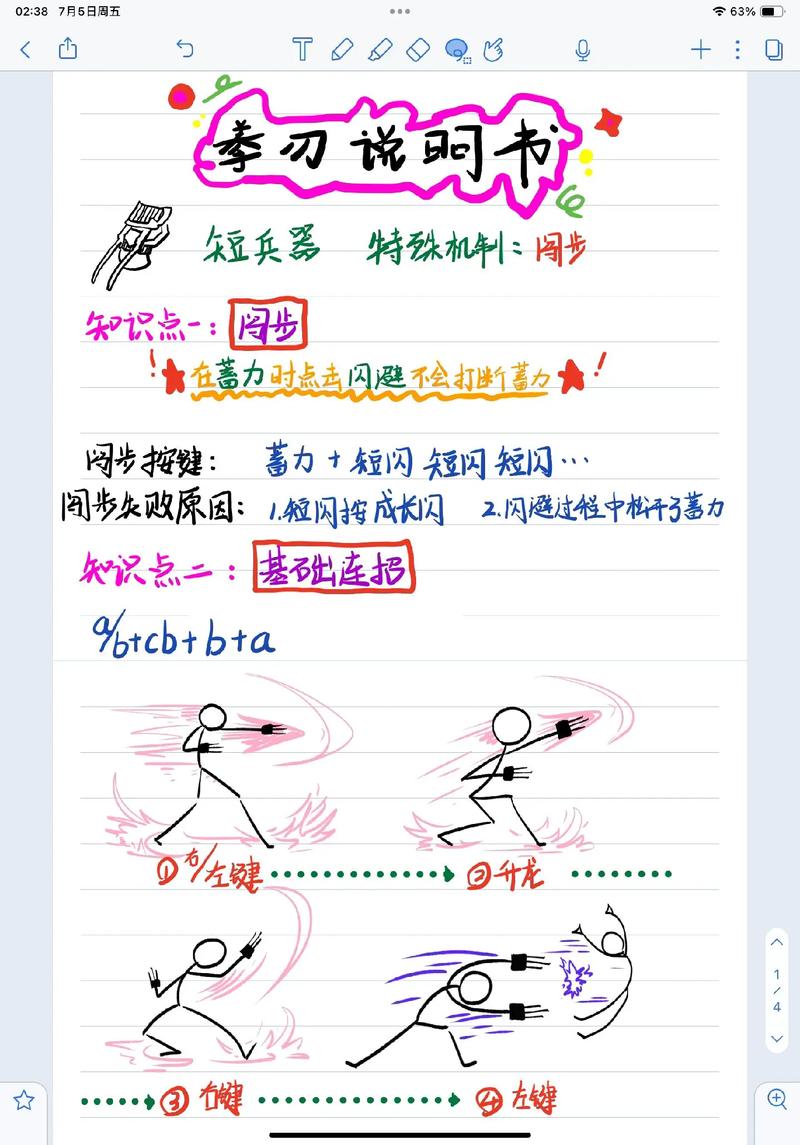 02:38 7月5日周五 63%
拳刃说明书
短兵器 特殊机制：闯步
知识点一：闯步
！在蓄力时点击闪避不会打断蓄力！
闯步按键： 蓄力+短闪 短闪 短闪…
闯步失败原因：1.短闪按成长闪 2.闪避过程中松开了蓄力
知识点二：基础连招
a/b+cb+b+a
①右/左键 ②升龙
③右键 ④左键
1
/
4